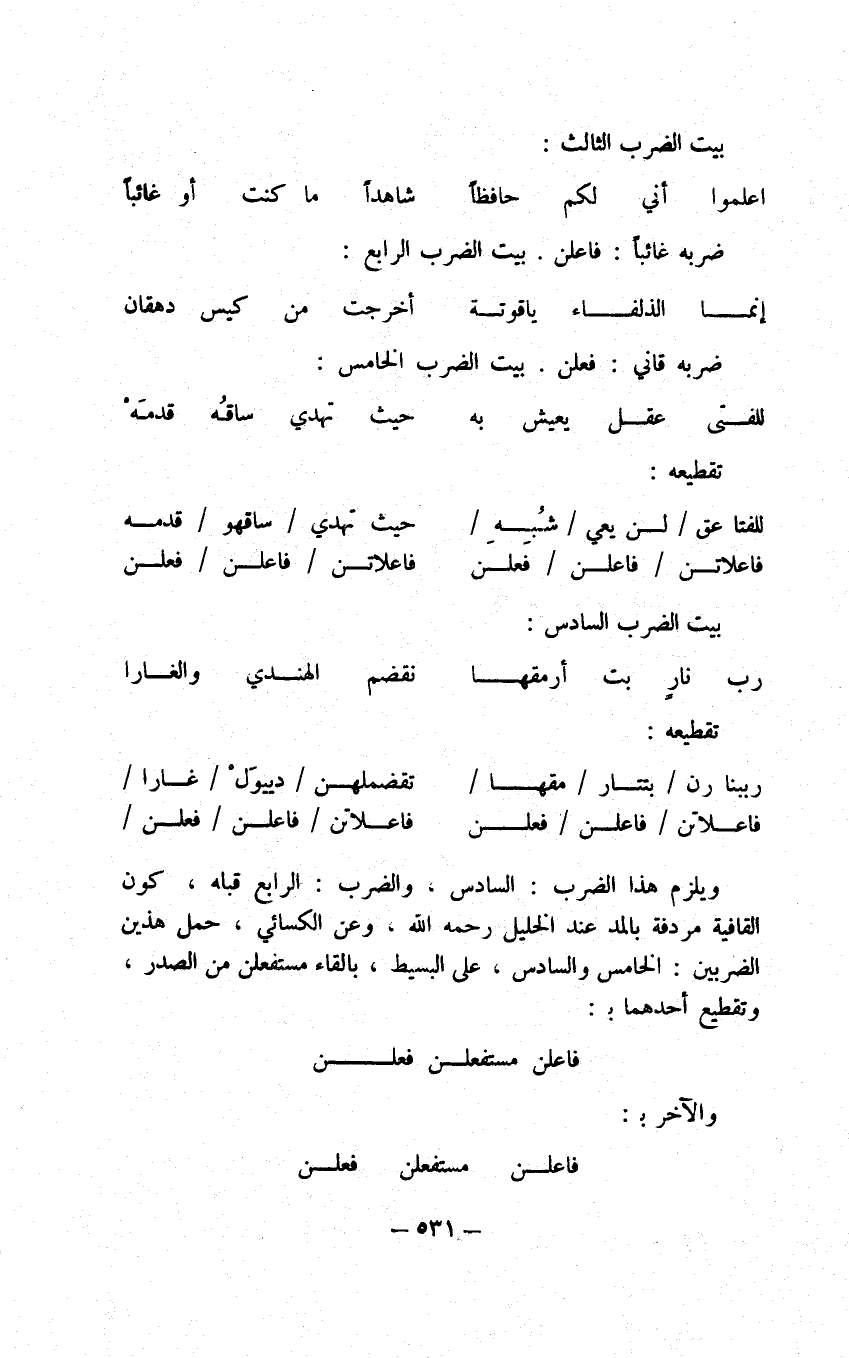 بيت الضرب الثالث :
اعلموا أني لكم حافظاً شاهداً ما كنت أو غائباً
ضربه غائباً : فاعلن . بيت الضرب الرابع :
إنمـــا الذلفــاء ياقوتــة أخرجت من كيس دهقان
ضربه قاني : فعلن . بيت الضرب الخامس :
للفــتى عقــل يعيش به حيث تهدي ساقُه قدمَهْ
تقطيعه :
للفتا عق / لــن يعي / شُبِــهِ / حيث تهدي / ساقهو / قدمــه
فاعلاتــن / فاعلــن / فعلــن فاعلاتــن / فاعلــن / فعلــن
بيت الضرب السادس :
رب نارٍ بت أرمقهــا نقضم الهنــدي والغــارا
تقطيعه :
ربينا رن / بتتــار / مقهــا / تقضملهــن / دييوَلْ / غــارا /
فاعــلاتن / فاعلــن / فعلــن فاعــلاتن / فاعلــن / فعلــن /
ويلزم هذا الضرب : السادس ، والضرب : الرابع قبله ، كون
القافية مردفة بالمد عند الخليل رحمه الله ، وعن الكسائي ، حمل هذين
الضربين : الخامس والسادس ، على البسيط ، بالقاء مستفعلن من الصدر ،
وتقطيع أحدهما بـ :
فاعلن مستفعلــن فعلـــن
والآخر بـ :
فاعلــن مستفعلن فعلــن
– ٥٣١ –